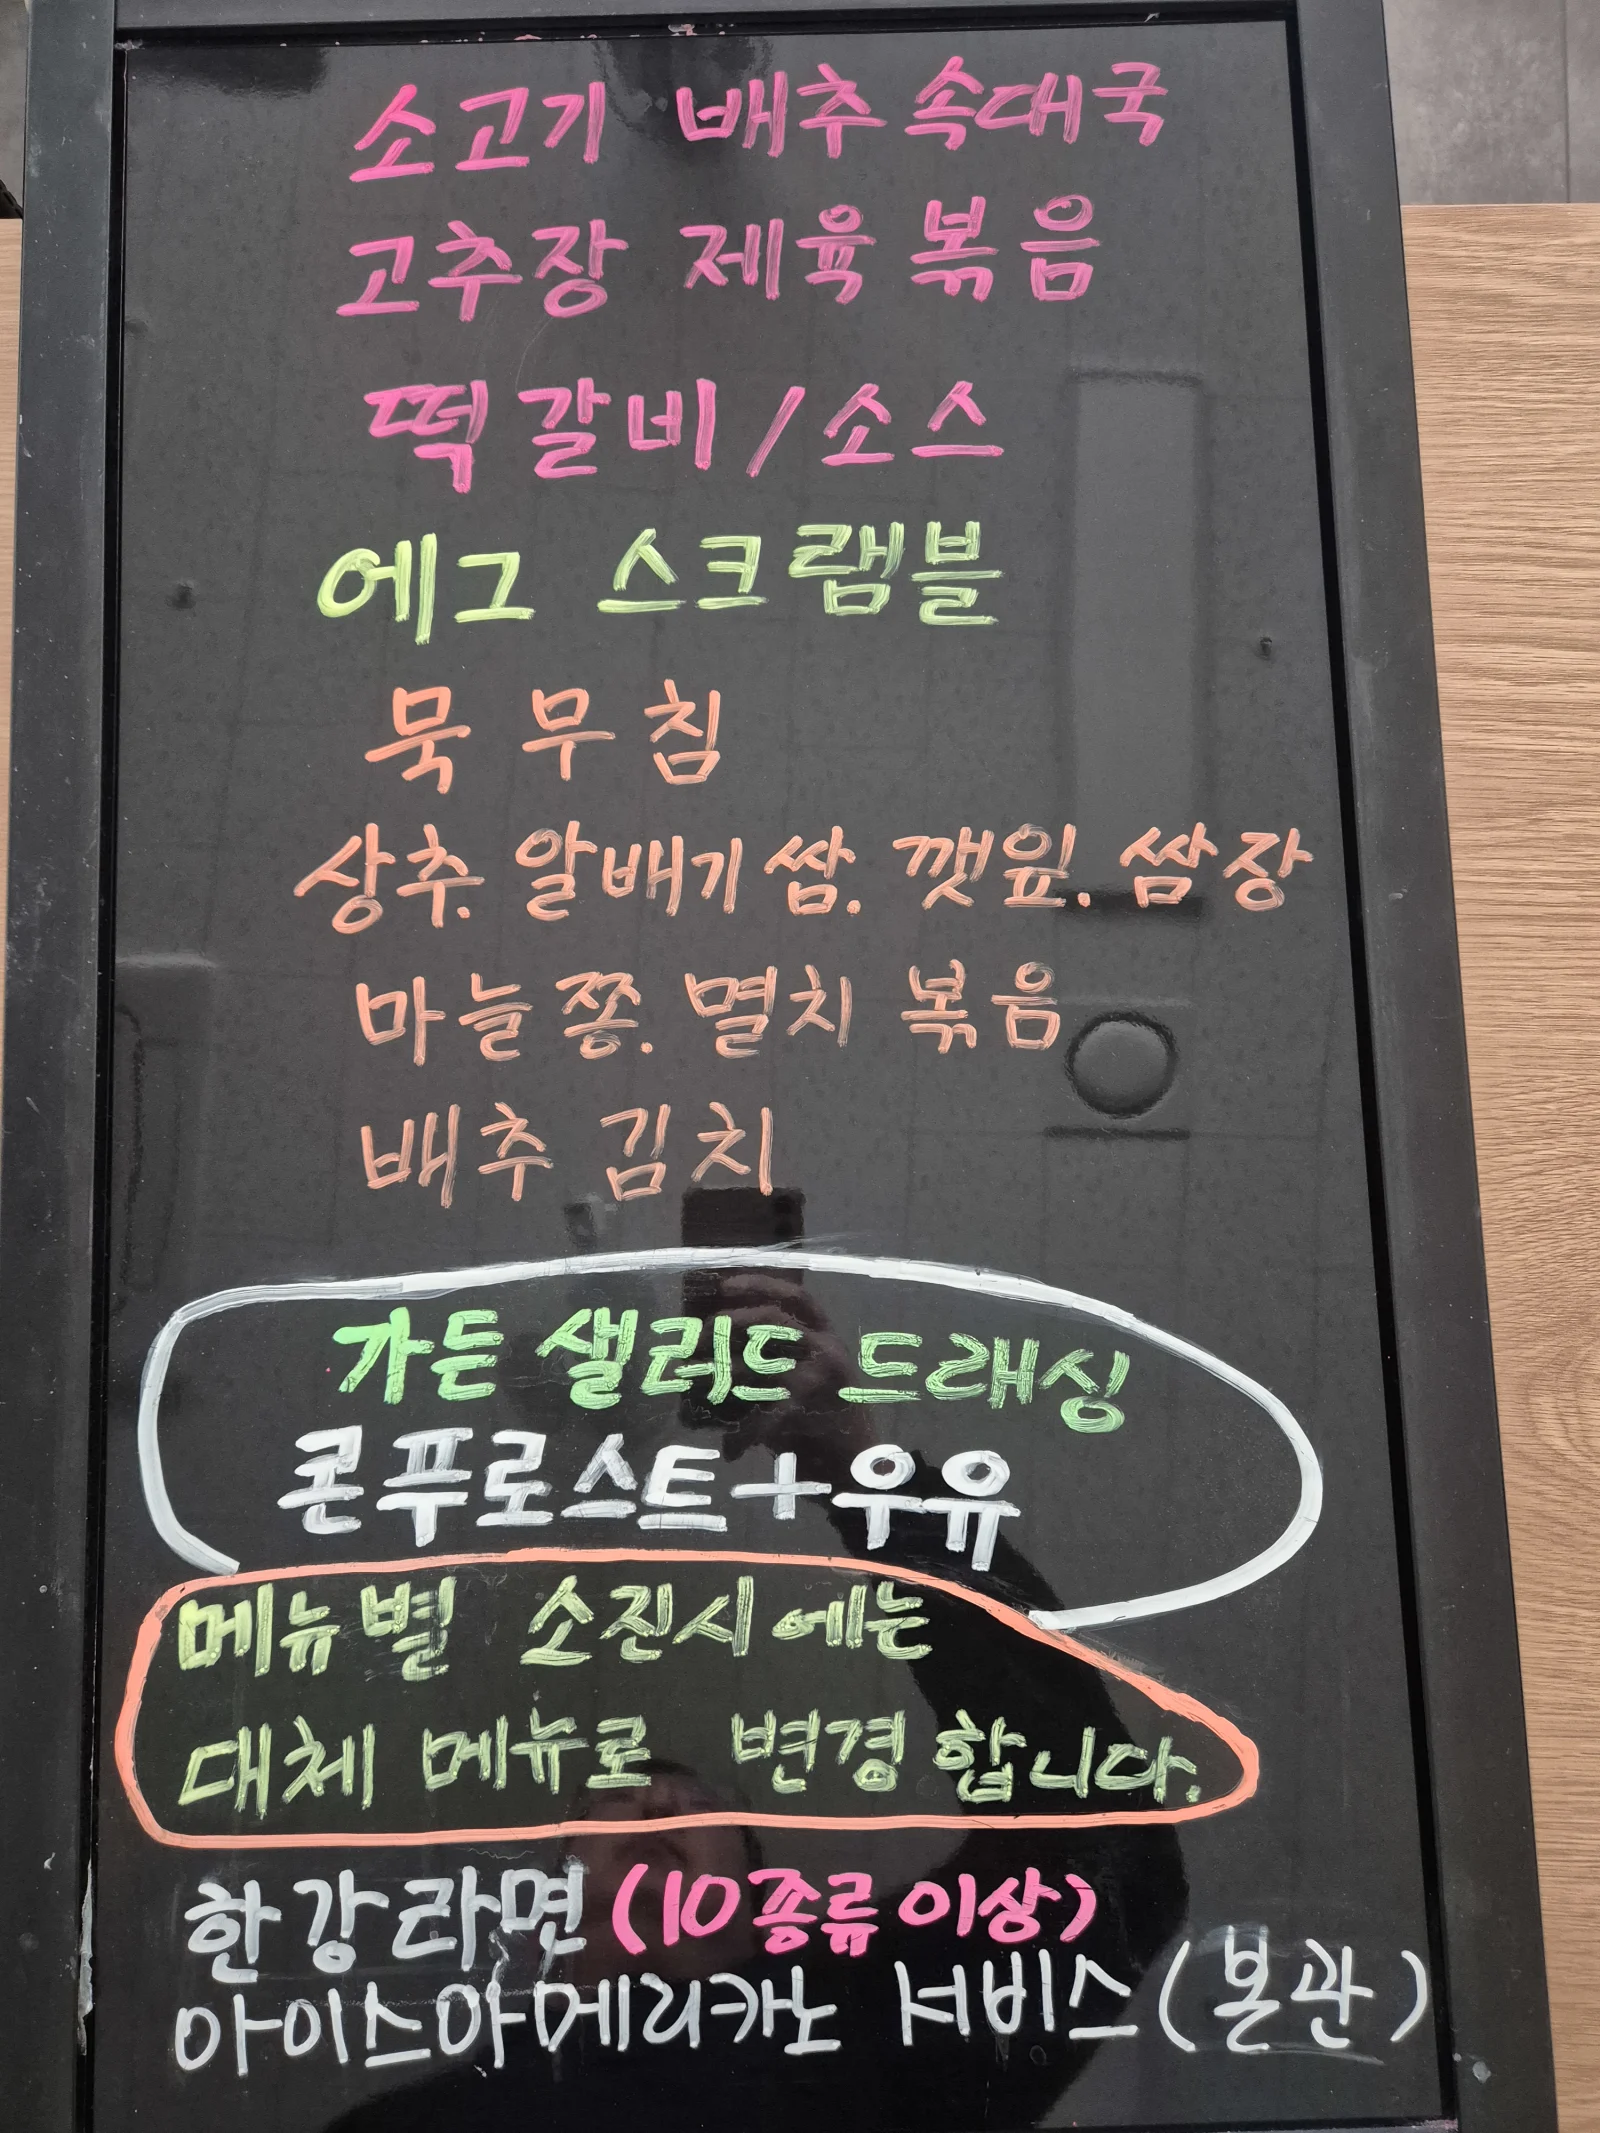 소고기 배추 속대국
고추장 제육 볶음
떡갈비/소스
에그 스크램블
묵 무침
상추. 알배기 쌈. 깻잎. 쌈장
마늘쫑. 멸치 볶음
배추 김치
가든 샐러드 드래싱
콘푸로스트+우유
메뉴별 소진시에는
대체 메뉴로 변경합니다.
한강라면 (10종류 이상)
아이스아메리카노 서비스(본관)